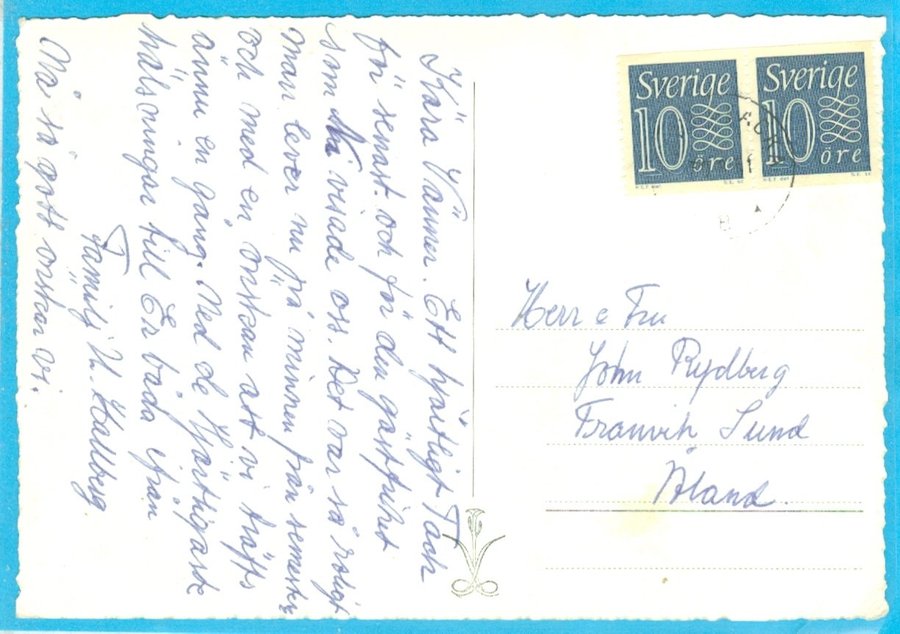 Kära Vänner. Ett hjärtligt Tack
för senast. och för den gästfrihet
som Ni visade oss. Det var så roligt
man lever nu på minnen från semester
och med en önskan att vi träffs
ännu en gång. Med de hjärtligaste
hälsningar till Er båda från
Familj H. Hallberg
Må så gott önskar vi.
Sverige
10
öre
Sverige
10
öre
Herr o Fru
John Rydberg
Framvik Sund
Åland.